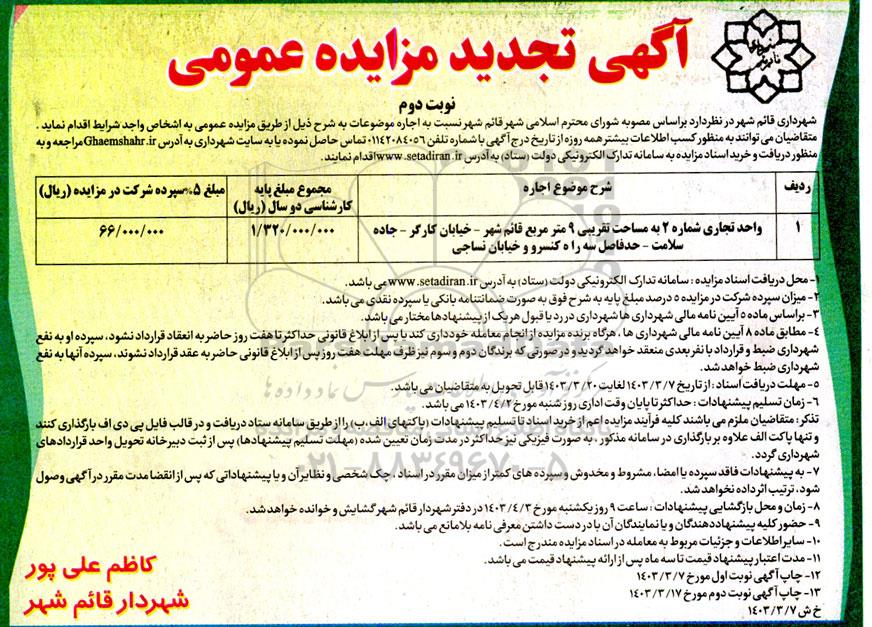 آگهی تجدید مزایده عمومی
نوبت دوم
شهرداری قائم شهر در نظر دارد براساس مصوبه شورای محترم اسلامی شهر قائم شهر نسبت به اجاره موضوعات به شرح ذیل از طریق مزایده عمومی به اشخاص واجد شرایط اقدام نماید .
متقاضیان می توانند به منظور کسب اطلاعات بیشتر همه روزه از تاریخ درج آگهی با شماره تلفن ۰۱۱۴۲۰۸۴۰۵۶ تماس حاصل نموده یا به سایت شهرداری به آدرس Ghaemshahr.ir مراجعه و به
منظور دریافت و خرید اسناد مزایده به سامانه تدارک الکترونیکی دولت (ستاد) به آدرس www.setadiran.ir اقدام نمایند.
ردیف شرح موضوع اجاره مجموع مبلغ پایه کارشناسی دو سال (ریال) مبلغ ۵٪ سپرده شرکت در مزایده (ریال)
۱ واحد تجاری شماره ۲ به مساحت تقریبی ۹ متر مربع قائم شهر – خیابان کارگر – جاده ۱/۳۲۰/۰۰۰/۰۰۰ ۶۶/۰۰۰/۰۰۰
سلامت – حدفاصل سه راه کنسرو و خیابان نساجی
۱- محل دریافت اسناد مزایده : سامانه تدارک الکترونیکی دولت (ستاد) به آدرس www.setadiran.ir می باشد.
۲- میزان سپرده شرکت در مزایده ۵ درصد مبلغ پایه به شرح فوق به صورت ضمانتنامه بانکی یا سپرده نقدی می باشد.
۳- بر اساس ماده ۵ آیین نامه مالی شهرداری ها شهرداری در رد یا قبول هر یک از پیشنهادها مختار می باشد.
۴- مطابق ماده ۸ آیین نامه مالی شهرداری ها ، هرگاه برنده مزایده از انجام معامله خودداری کند یا پس از ابلاغ قانونی حداکثر تا هفت روز حاضر به انعقاد قرارداد نشود، سپرده او به نفع
شهرداری ضبط و قرارداد با نفر بعدی منعقد خواهد گردید و در صورتی که برندگان دوم و سوم نیز ظرف مهلت هفت روز پس از ابلاغ قانونی حاضر به عقد قرارداد نشوند، سپرده آنها به نفع
شهرداری ضبط خواهد شد.
۵- مهلت دریافت اسناد : از تاریخ ۱۴۰۳/۳/۷ لغایت ۱۴۰۳/۳/۲۰ قابل تحویل به متقاضیان می باشد.
۶- زمان تسلیم پیشنهادات : حداکثر تا پایان وقت اداری روز شنبه مورخ ۱۴۰۳/۴/۲ می باشد.
تذکر : متقاضیان ملزم می باشند کلیه فرآیند مزایده اعم از خرید اسناد تا تسلیم پیشنهادات (پاکتهای الف،ب) را از طریق سامانه ستاد دریافت و در قالب فایل پی دی اف بارگذاری کنند
و تنها پاکت الف علاوه بر بارگذاری در سامانه مذکور ، به صورت فیزیکی نیز حداکثر در مدت زمان تعیین شده (مهلت تسلیم پیشنهادها) پس از ثبت دبیرخانه تحویل واحد قراردادهای
شهرداری گردد.
۷- به پیشنهادات فاقد سپرده یا امضا ، مشروط و مخدوش و سپرده های کمتر از میزان مقرر در اسناد ، چک شخصی و نظایر آن و یا پیشنهاداتی که پس از انقضا مدت مقرر در آگهی وصول
شود، ترتیب اثر داده نخواهد شد.
۸- زمان و محل بازگشایی پیشنهادات : ساعت ۹ روز یکشنبه مورخ ۱۴۰۳/۴/۳ در دفتر شهردار قائم شهر گشایش و خوانده خواهد شد.
۹- حضور کلیه پیشنهاددهندگان و یا نمایندگان آن با در دست داشتن معرفی نامه بلامانع می باشد.
۱۰- سایر اطلاعات و جزئیات مربوط به معامله در اسناد مزایده مندرج است.
۱۱- مدت اعتبار پیشنهاد قیمت تا سه ماه پس از ارائه پیشنهاد قیمت می باشد.
۱۲- چاپ آگهی نوبت اول مورخ ۱۴۰۳/۳/۷
۱۳- چاپ آگهی نوبت دوم مورخ ۱۴۰۳/۳/۱۷
خ ش ۱۴۰۳/۳/۷
کاظم علی پور
شهردار قائم شهر
۰۲۱-۸۸۳۴۹۶۷۰-۵